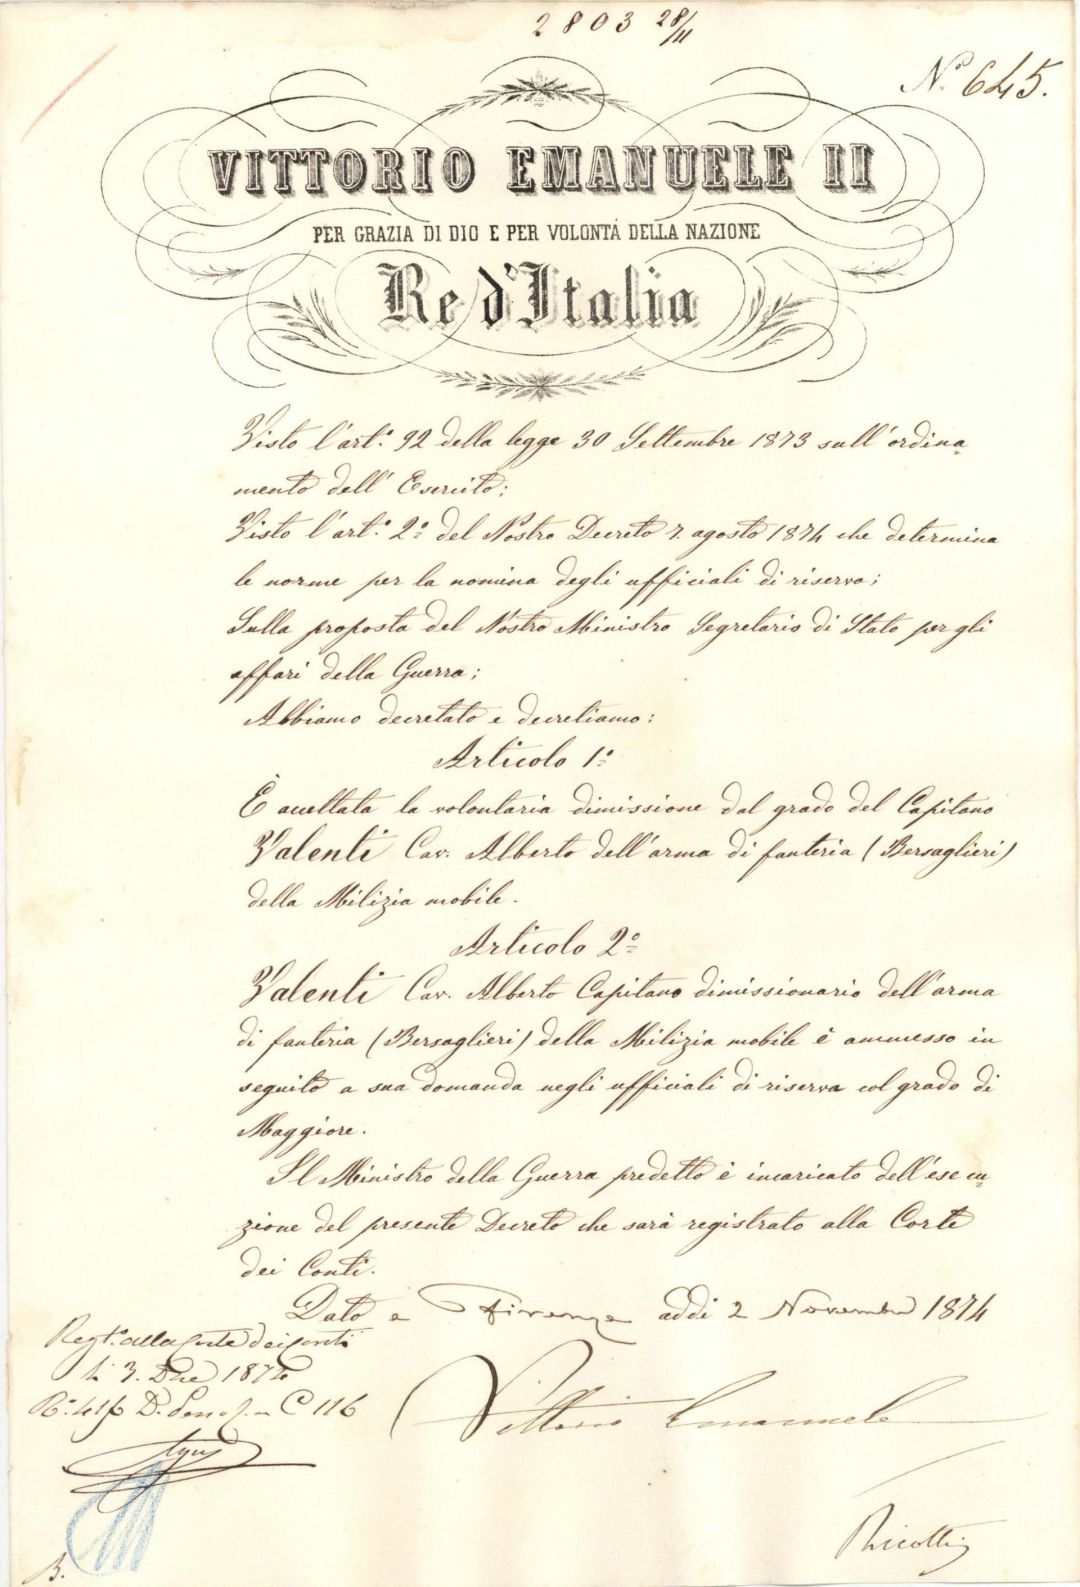 2803 28/11
N.º 645.
VITTORIO EMANUELE II
PER GRAZIA DI DIO E PER VOLONTÁ DELLA NAZIONE
Re d'Italia
Visto l'art.º 92 della legge 30 Settembre 1873 sull'ordina
mento dell'Esercito;
Visto l'art.º 2º del Nostro Decreto 7. agosto 1874 che determina
le norme per la nomina degli ufficiali di riserva;
Sulla proposta del Nostro Ministro Segretario di Stato per gli
affari della Guerra;
Abbiamo decretato e decretiamo:
Articolo 1º
È accettata la volontaria dimissione dal grado del Capitano
Valenti Cav. Alberto dell'arma di fanteria (Bersaglieri)
della Milizia mobile.
Articolo 2º
Valenti Cav. Alberto Capitano dimissionario dell'arma
di fanteria (Bersaglieri) della Milizia mobile è ammesso in
seguito a sua domanda negli ufficiali di riserva col grado di
Maggiore.
Il Ministro della Guerra predetto è incaricato dell'esecu
zione del presente Decreto che sarà registrato alla Corte
dei Conti.
Dato a Firenze addì 2 Novembre 1874
Regt.º alla Corte dei Conti
li 3. Dbe 1874
C 116
Vittorio Emanuele
Ricotti
B.